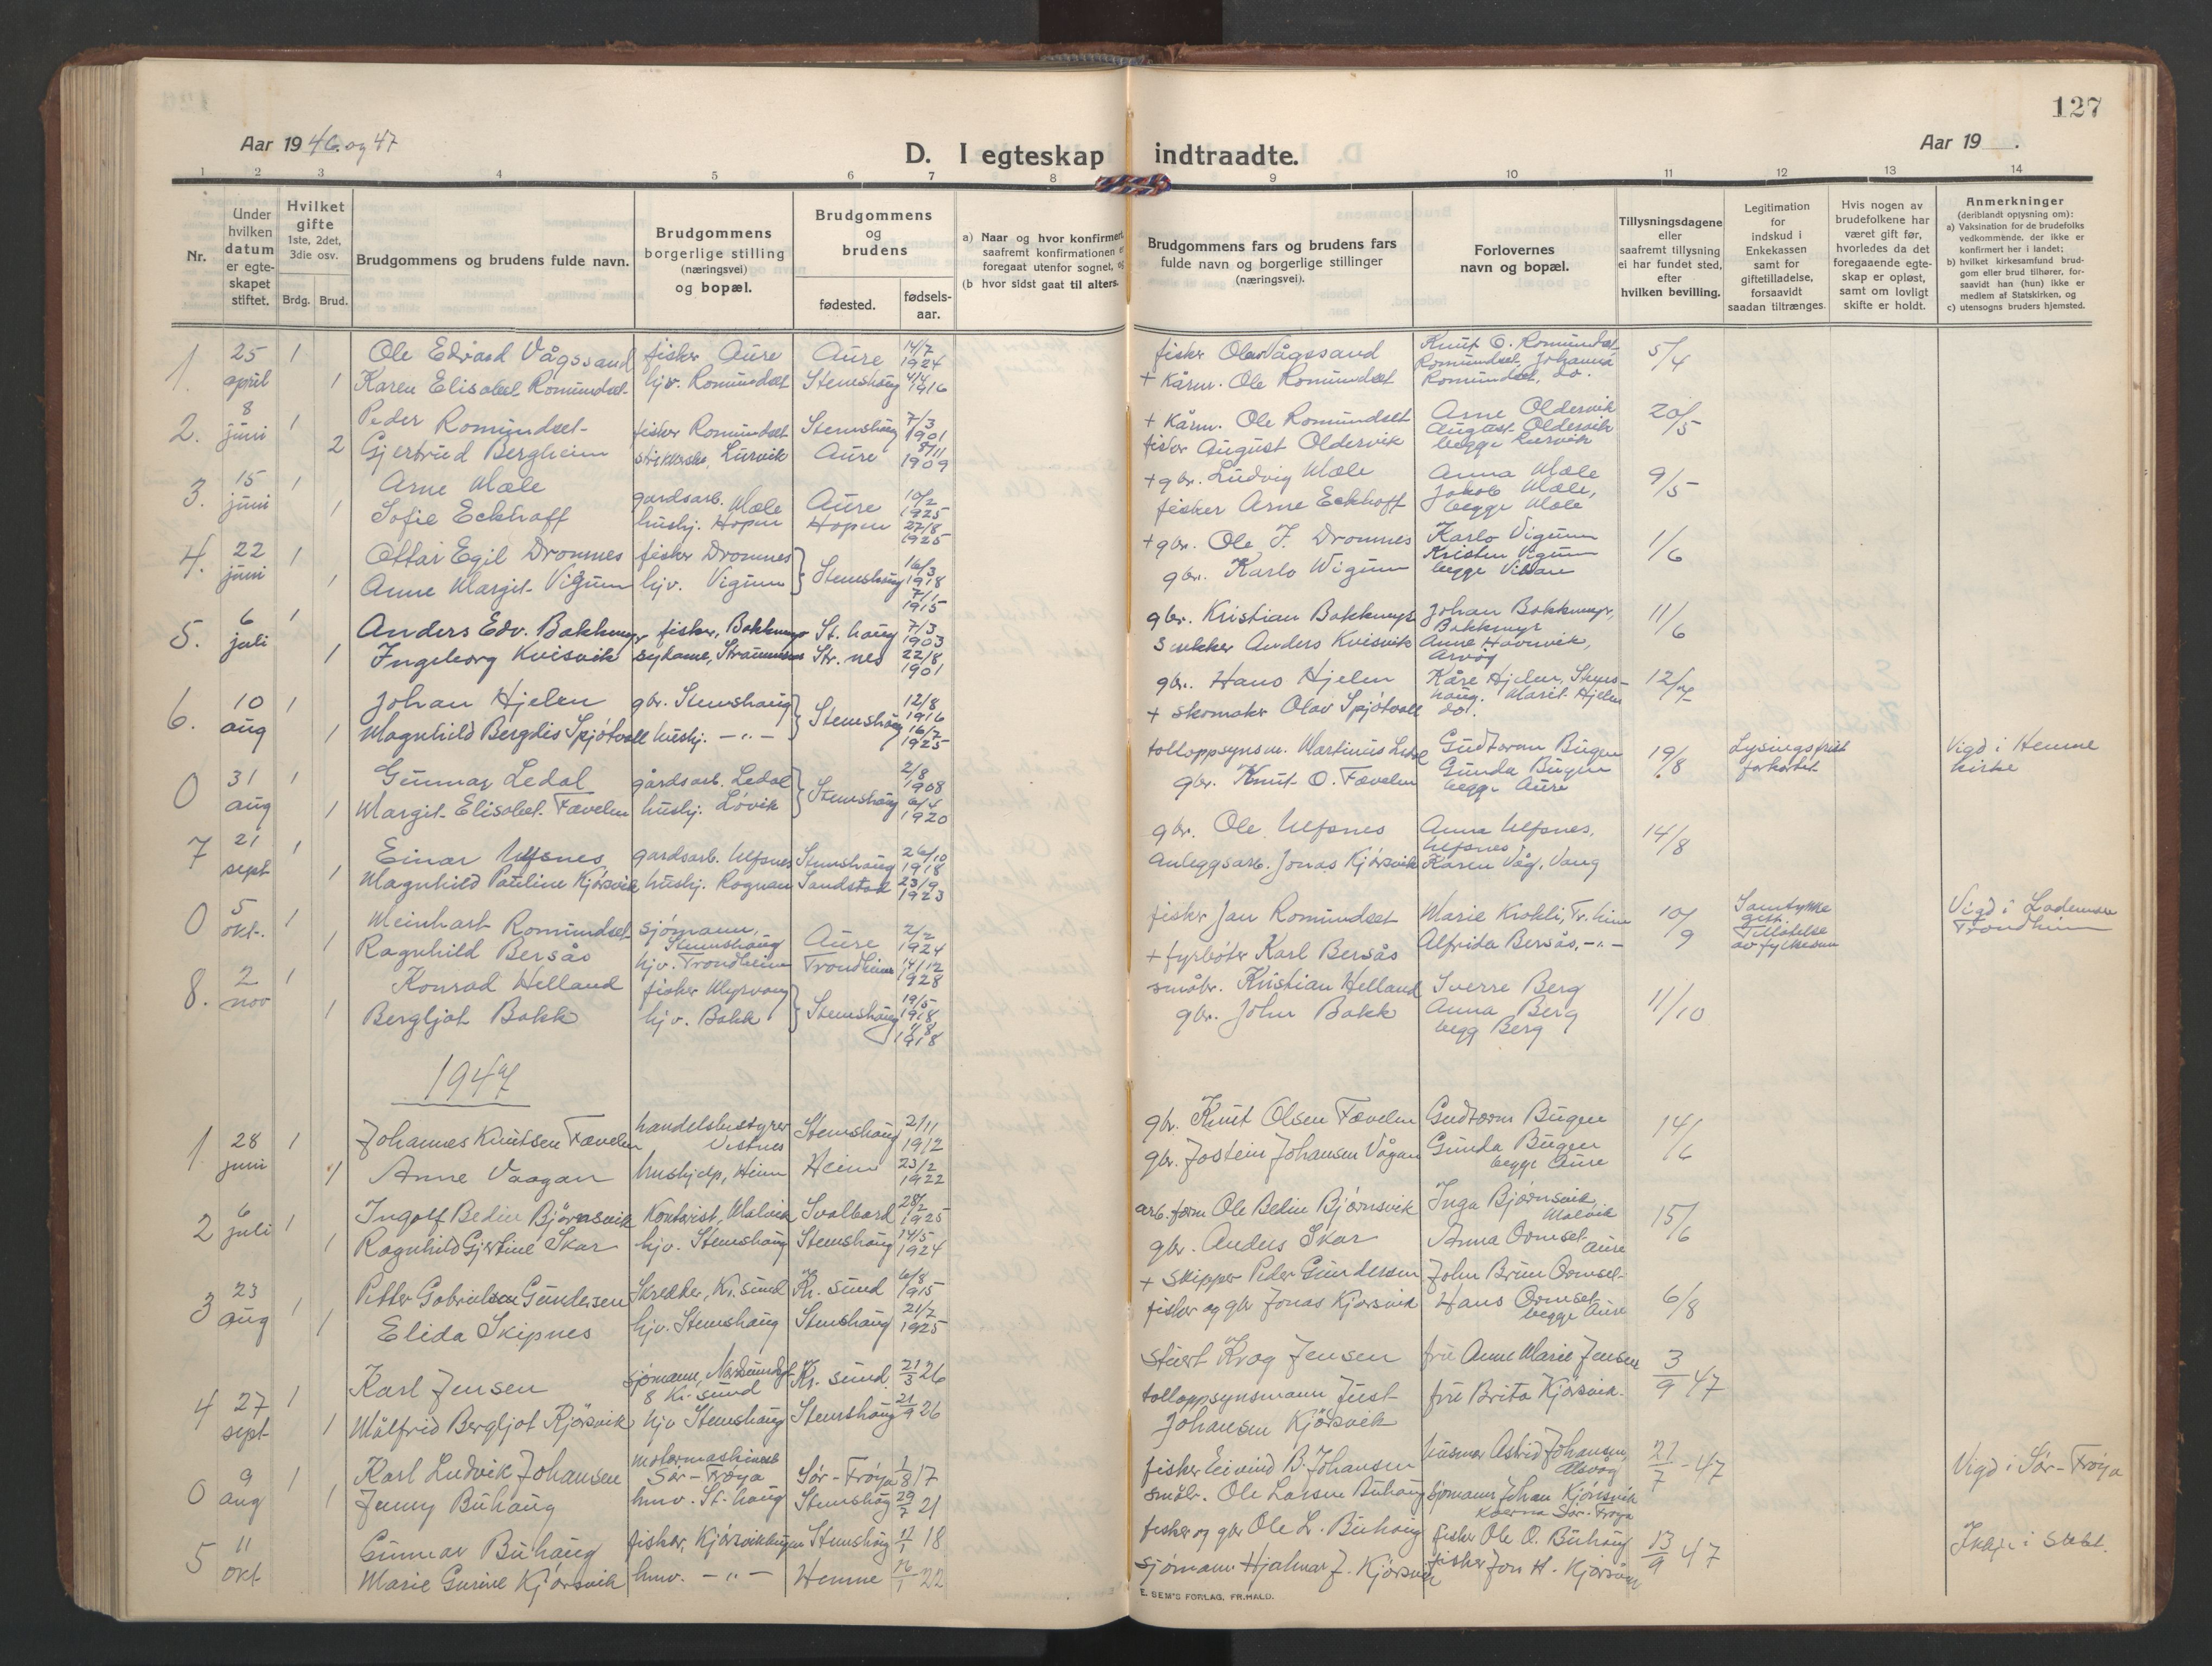 127
Aar 1946 og 47
D. I egteskap indtraadte.
Aar 19 .
1 2 3 4 5 6 7 8 9 10 11 12 13 14
Nr.
Under hvilken datum er egte-skapet stiftet.
Hvilket gifte 1ste, 2det, 3die osv.
Brdg. Brud.
Brudgommens og brudens fulde navn.
Brudgommens borgerlige stilling (næringsvei) og bopæl.
Brudgommens og brudens
fødested. fødsels-aar.
a) Naar og hvor konfirmert,
saafremt konfirmationen er
foregaat utenfor sognet, og
(b hvor sidst gaat til alters.
Brudgommens fars og brudens fars
fulde navn og borgerlige stillinger
(næringsvei).
Forlovernes
navn og bopæl.
Tillysningsdagene
eller
saafremt tillysning
ei har fundet sted,
efter
hvilken bevilling.
Legitimation
for
indskud i
Enkekassen
samt for
giftetilladelse,
forsaavidt
saadan tiltrænges.
Hvis nogen av
brudefolkene har
været gift før,
hvorledes da det
foregaaende egte-
skap er opløst,
samt om lovligt
skifte er holdt.
Anmerkninger
(deriblandt oplysning om):
a) Vaksination for de brudefolks
vedkommende, der ikke er
konfirmert her i landet;
b) hvilket kirkesamfund brud-
gom eller brud tilhører, for-
saavidt han (hun) ikke er
medlem af Statskirken, og
c) utensogns bruders hjemsted.
1. 25 april 1 Ole Edvard Vågssand fisker Aure Aure 14/7 1924 fisker Olav Vågssand Knut O. Romundset 5/4
1 Karen Elisabet Romundset hjv. Romundset Stemshaug 4/4 1916 + kårm. Ole Romundset Romundset, Johanna Romundset, do.
2. 8 juni 1 Peder Romundset fisker Romundset Stemshaug 7/3 1901 + kårm. Ole Romundset Arne Oldervik 20/5
2 Gjertrud Bergheim Lurvik Aure 8/11 1909 fisker August Oldervik August Oldervik begge Lurvik
3. 15 juni 1 Arne Mæle gardsarb. Mæle Aure 10/2 1925 + gbr. Ludvig Mæle Anna Mæle 9/5
1 Sofie Eckhoff hushj. Hopen Hopen 27/8 1925 fisker Arne Eckhoff Jakob Mæle, begge Mæle
4. 22 juni 1 Ottar Egil Dromnes fisker Dromnes Stemshaug 16/3 1918 + gbr. Ole J. Dromnes Karlo Vigum 1/6
1 Anne Margit Vigum hjv. Vigum 7/1 1915 gbr. Karlo Wigum Kristen Vigum begge
5. 6 juli 1 Anders Edv. Bakkmyr fisker, Bakkmyr St. haug 7/3 1903 gbr. Kristian Bakkmyr Johan Bakkmyr, Bakkmyr 11/6
1 Ingeborg Kvisvik sydame, Straumsnes Str. nes 22/8 1901 snekker Anders Kvisvik Anne
6. 10 aug 1 Johan Hjelen gbr. Stemshaug Stemshaug 12/8 1916 gbr. Hans Hjelen Kåre Hjelen, Stemshaug. Marit Hjelen do. 12/7
1 Magnhild Bergdis Spjøtvoll hushj. -"- 16/7 1925 + skomaker Olav Spjøtvoll
0 31 aug 1 Gunnar Ledal gårdsarb. Ledal Stemshaug 2/8 1908 tolloppsynsm. Martinus Ledal Gudtorm Bugen 19/8 Lysingsfrist forkortet Vigd i Hemne kirke
1 Margit Elisabet Fævelen hushj. Løvik 6/4 1920 gbr. Knut O. Fævelen Gunda Bugen begge Aure
7 21 sept 1 Einar Ulfsnes gardsarb. Ulfsnes Stemshaug 26/10 1918 gbr. Ole Ulfsnes Anna Ulfsnes, Ulfsnes 14/8
1 Magnhild Pauline Kjørsvik hushj. Rognan Sandstad 23/9 1923 anleggsarb. Jonas Kjørsvik Karen Våg, Vaag
0 5 okt. 1 Meinhart Romundset sjømann, Stemshaug Aure 2/2 1924 fisker Jan Romundset Marie Krokli, Tr.heim 10/9 Samtykke gitt. Tillatelse av fylkesm Vigd i Lademoen Trondheim
1 Ragnhild Bersås hjv. Trondheim Trondheim 14/12 1928 + fyrbøter Karl Bersås Alfrida Bersås, -"-
8. 2 nov 1 Konrad Helland fisker Myrvang Stemshaug 19/5 1918 småbr. Kristian Helland Sverre Berg 11/10
1 Bergljot Bakk hjv. Bakk 1918 gbr. John Bakk Anna Berg begg Berg
1947
1 28 juni 1 Johannes Knutsen Fævelen handelsbestyrer Vestnes Stemshaug 2/11 1912 gbr. Knut Olsen Fævelen Gudtorm Bugen 14/6
1 Anne Vaagan hushjelp, Heim Heim 23/2 1922 gbr. Jostein Johansen Vågan Gunda Bugen begge Aure
2 6 juli 1 Ingolf Bedin Bjørnsvik Kontorist, Malvik Svalbard 28/2 1925 arb. form Ole Bedin Bjørnsvik Inga Bjørnsvik Malvik 15/6
1 Ragnhild Gjertine Skar hjv. Stemshaug Stemshaug 14/5 1924 gbr. Anders Skar Anna Ormset Aure
3 23 aug 1 Petter Gabrielsen Gundersen Skredder, Kr. sund Kr. sund 6/8 1915 + skipper Peder Gundersen John Brun Ormset 6/8
1 Elida Skipnes hjv. Stemshaug Stemshaug 21/7 1925 fisker og gbr Jonas Kjørsvik Hans Ormset begge Aure
4 27 sept 1 Karl Jensen sjømann, 8 Kr. sund Kr. sund 21/3 26 stuert Krag Jensen fru Anne Marie Jensen 3/9 47
1 Målfrid Bergljot Kjørsvik hjv Stemshaug Stemshaug 21/9 26 tolloppsynsmann Just Johansen Kjørsvik fru Brita Kjørsvik.
0 9 aug 1 Karl Ludvik Johansen Sør-Frøya Sør-Frøya 1/8 17 fisker Eivind B. Johansen husmor Astrid Johansen, 21/7 - 47 Vigd i Sør-Frøya
1 Jenny Buhaug hmv. St. haug Stemshaug 29/7 21 småbr. Ole Larsen Buhaug sjømann Johan Kjørsvik Sør-Frøya
5 11 okt Gunnar Buhaug fisker, Kjørsvikbugen Stemshaug 18 fisker og gbr Ole L. Buhaug fisker Ole O. Buhaug 13/9 47
Marie Gurine Kjørsvik hmv. -"- Hemne 16/1 22 sjømann Hjalmar J. Kjørsvik fisker Jon H. Kjørsvik
E. SEM'S FORLAG, FR.HALD.